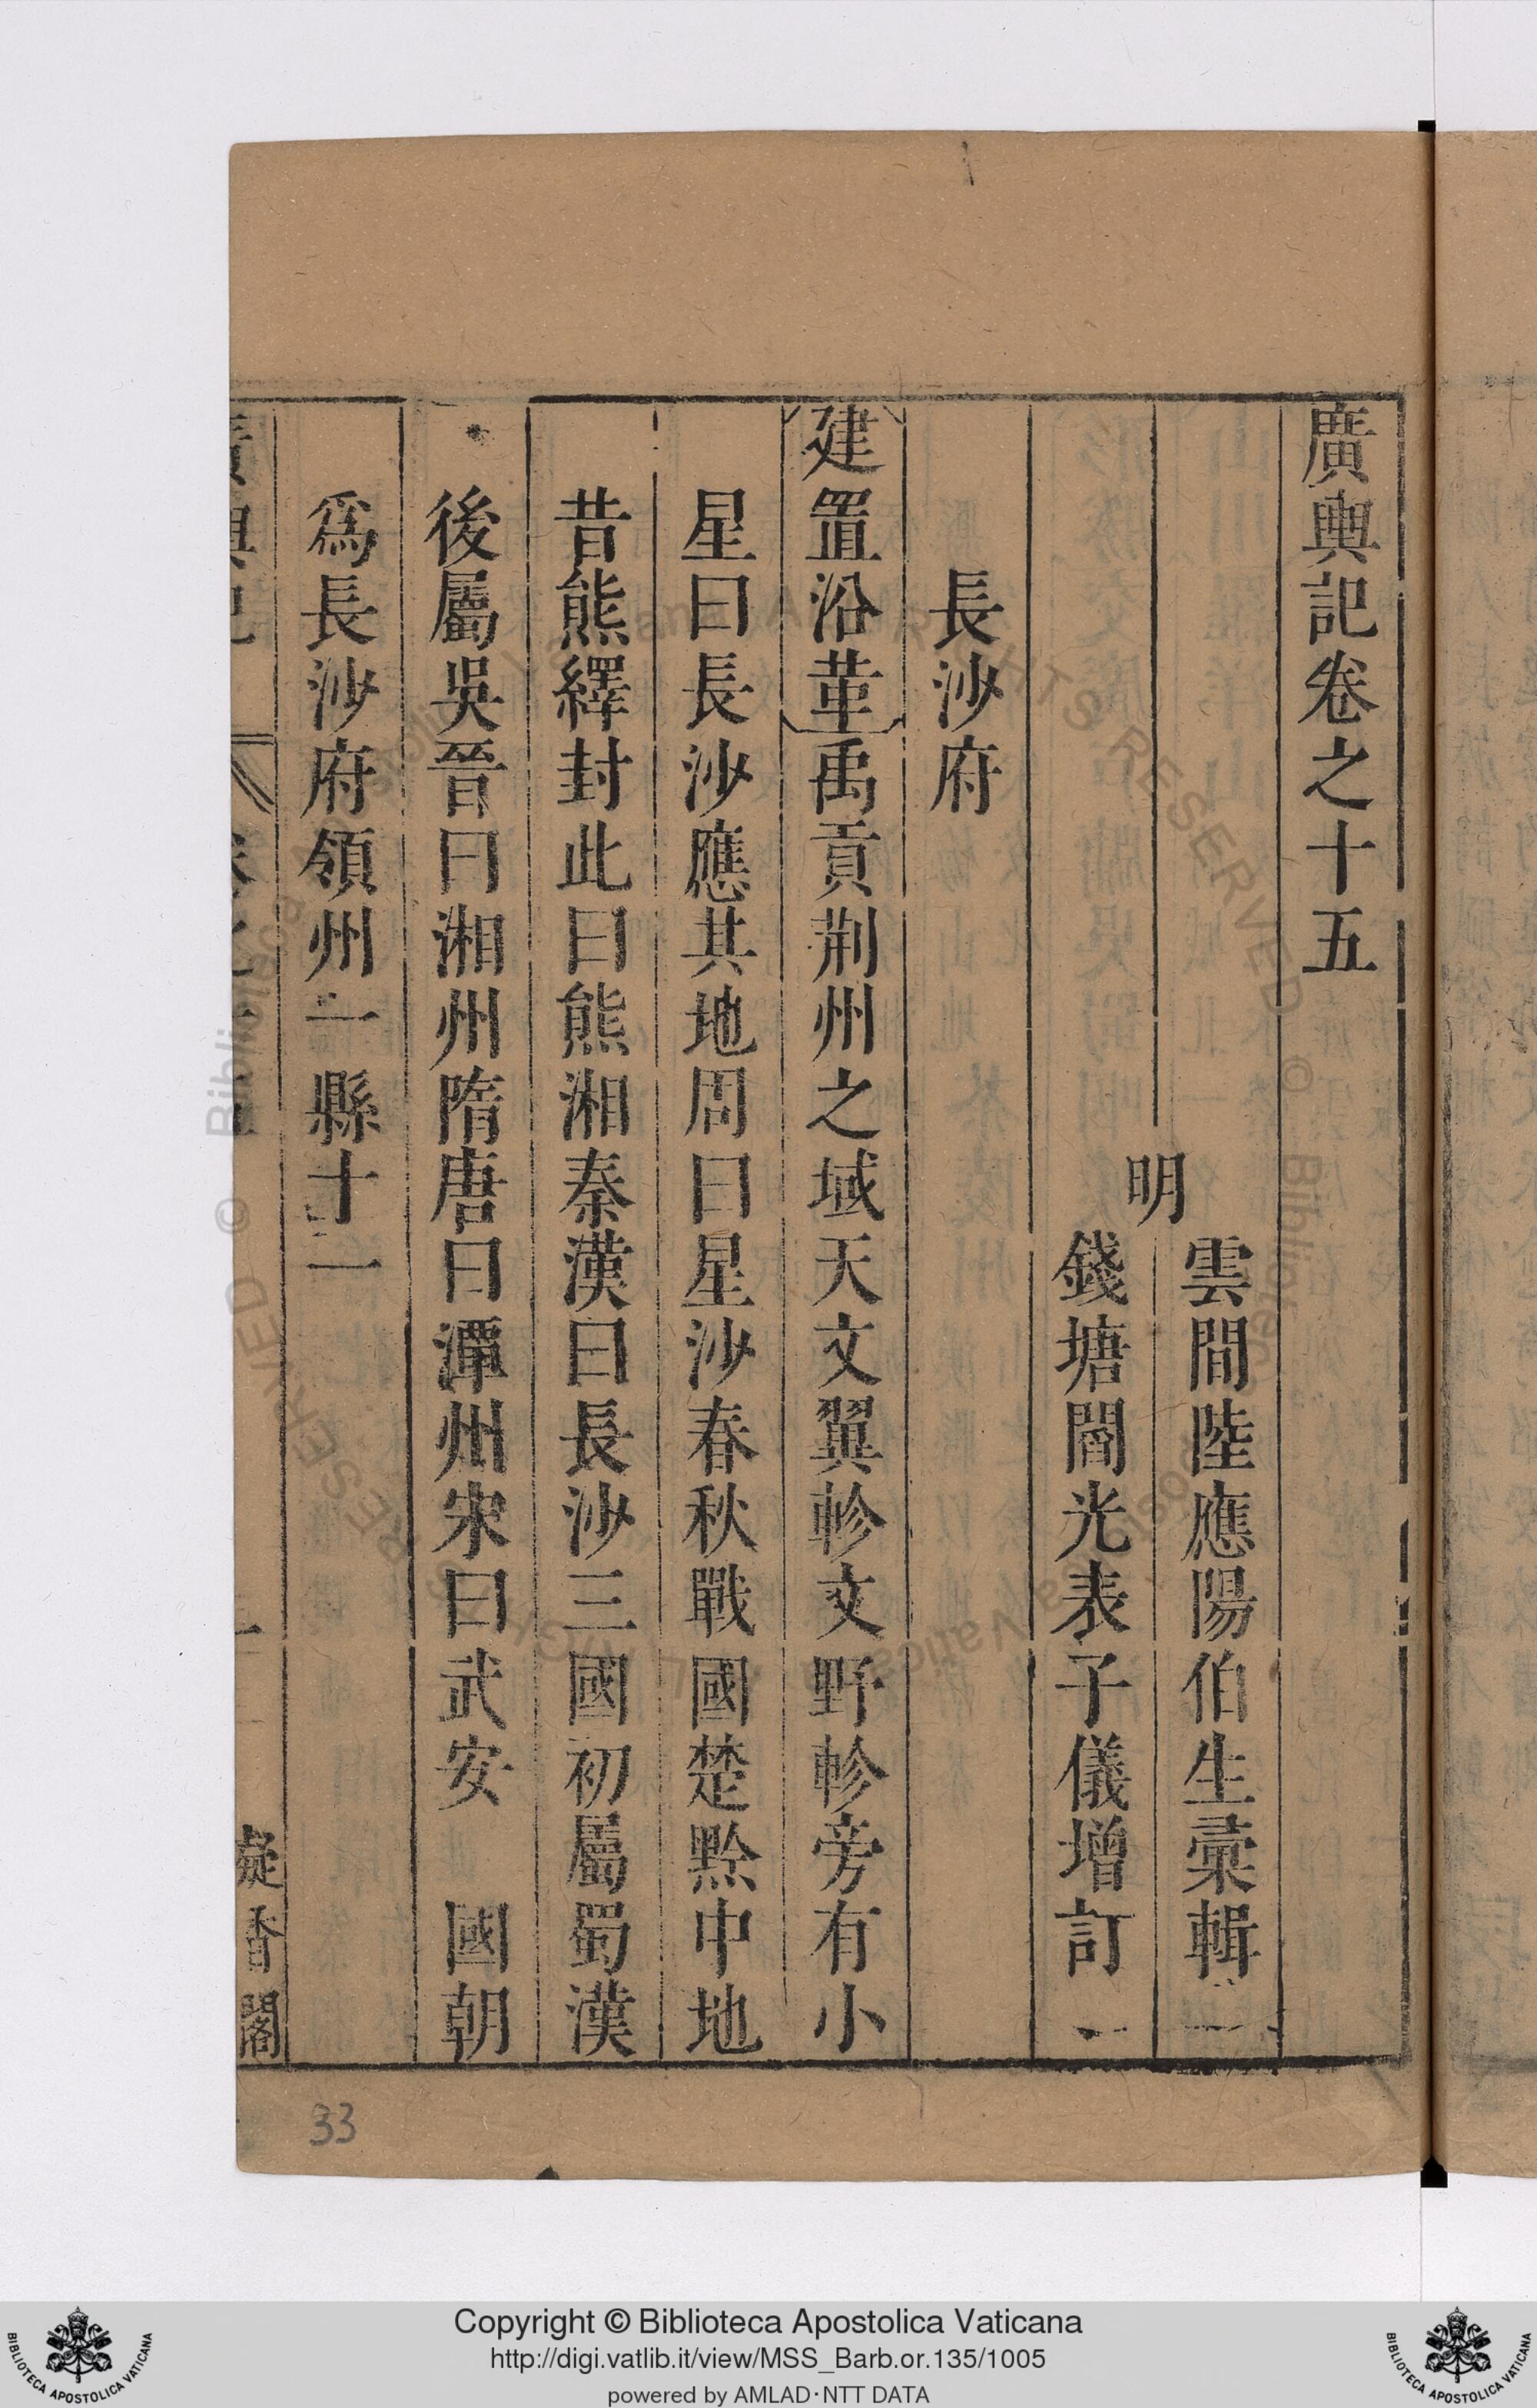 廣輿記卷之十五
明
雲間陸應陽伯生彚輯
錢塘閻光表子儀增訂
長沙府
建置沿革禹貢荆州之域天文翼軫文野軫旁有小
星曰長沙應其地周曰星沙春秋戰國楚黔中地
昔熊繹封此曰熊湘秦漢曰長沙三國初屬蜀漢
後屬吳晉曰湘州隋唐曰潭州宋曰武安 國朝
爲長沙府領州一縣十一
凝香閣
33
Copyright © Biblioteca Apostolica Vaticana
http://digi.vatlib.it/view/MSS_Barb.or.135/1005
powered by AMLAD·NTT DATA
BIBLIOTECA APOSTOLICA VATICANA
BIBLIOTECA APOSTOLICA VATICANA